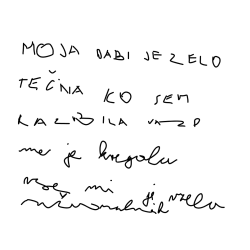 MOJA BABI JE ZELO
TEČNA KO SEM
RAZBILA VAZO
me je kregala
mi ji vzela